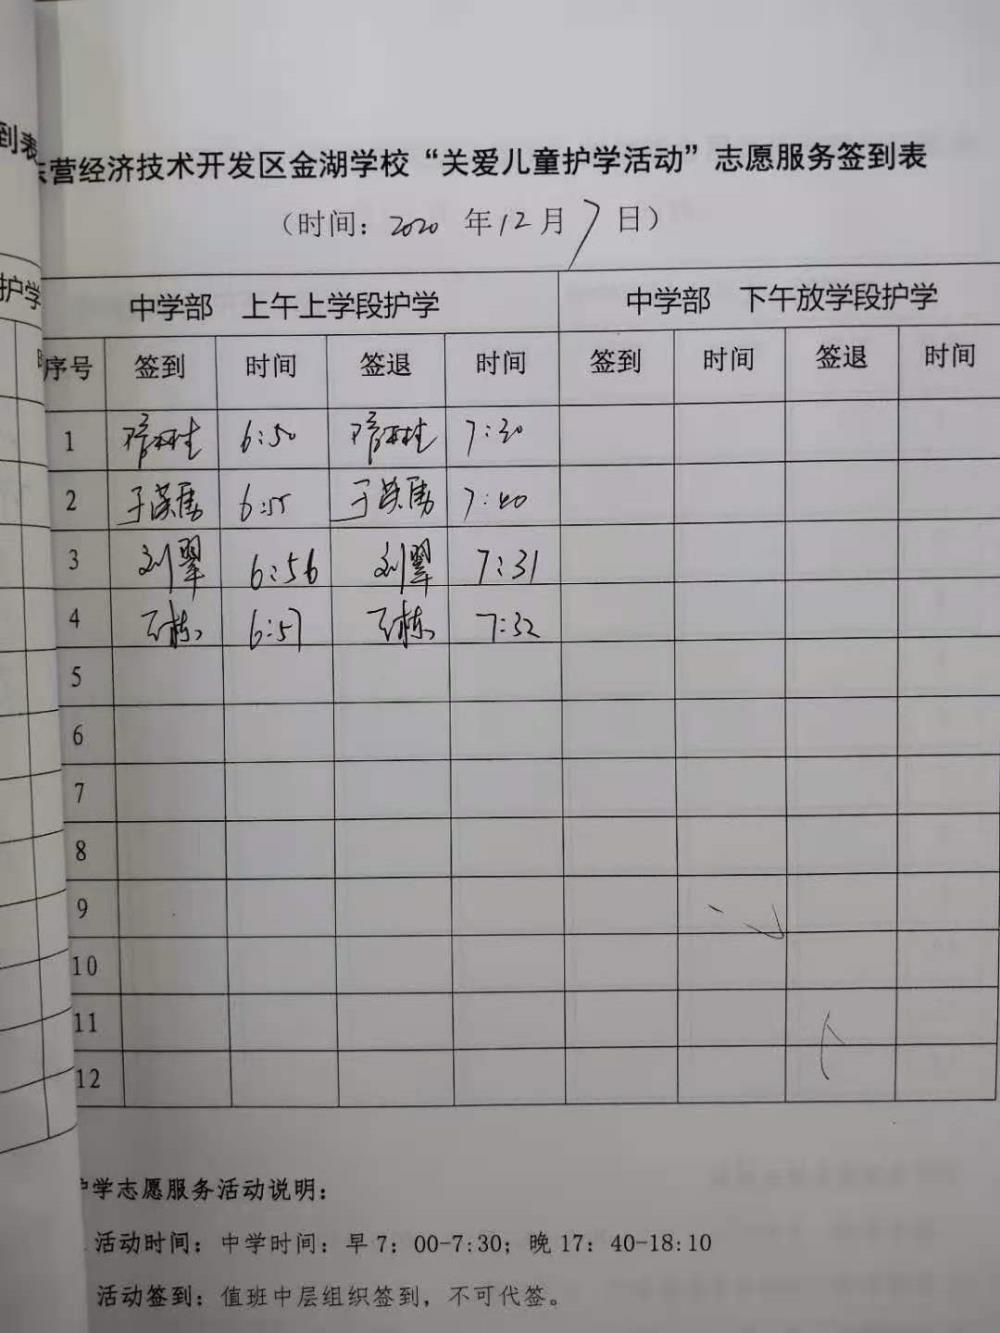 到表
东营经济技术开发区金湖学校“关爱儿童护学活动”志愿服务签到表
（时间：2020 年 12 月 7 日）
护学
中学部 上午上学段护学 中学部 下午放学段护学
序号 签到 时间 签退 时间 签到 时间 签退 时间
1 6:50 7:30
2 6:55 7:40
3 刘翠 6:56 刘翠 7:31
4 6:57 7:32
5
6
7
8
9
10
11
12
护学志愿服务活动说明：
活动时间：中学时间：早 7：00-7:30；晚 17：40-18:10
活动签到：值班中层组织签到，不可代签。